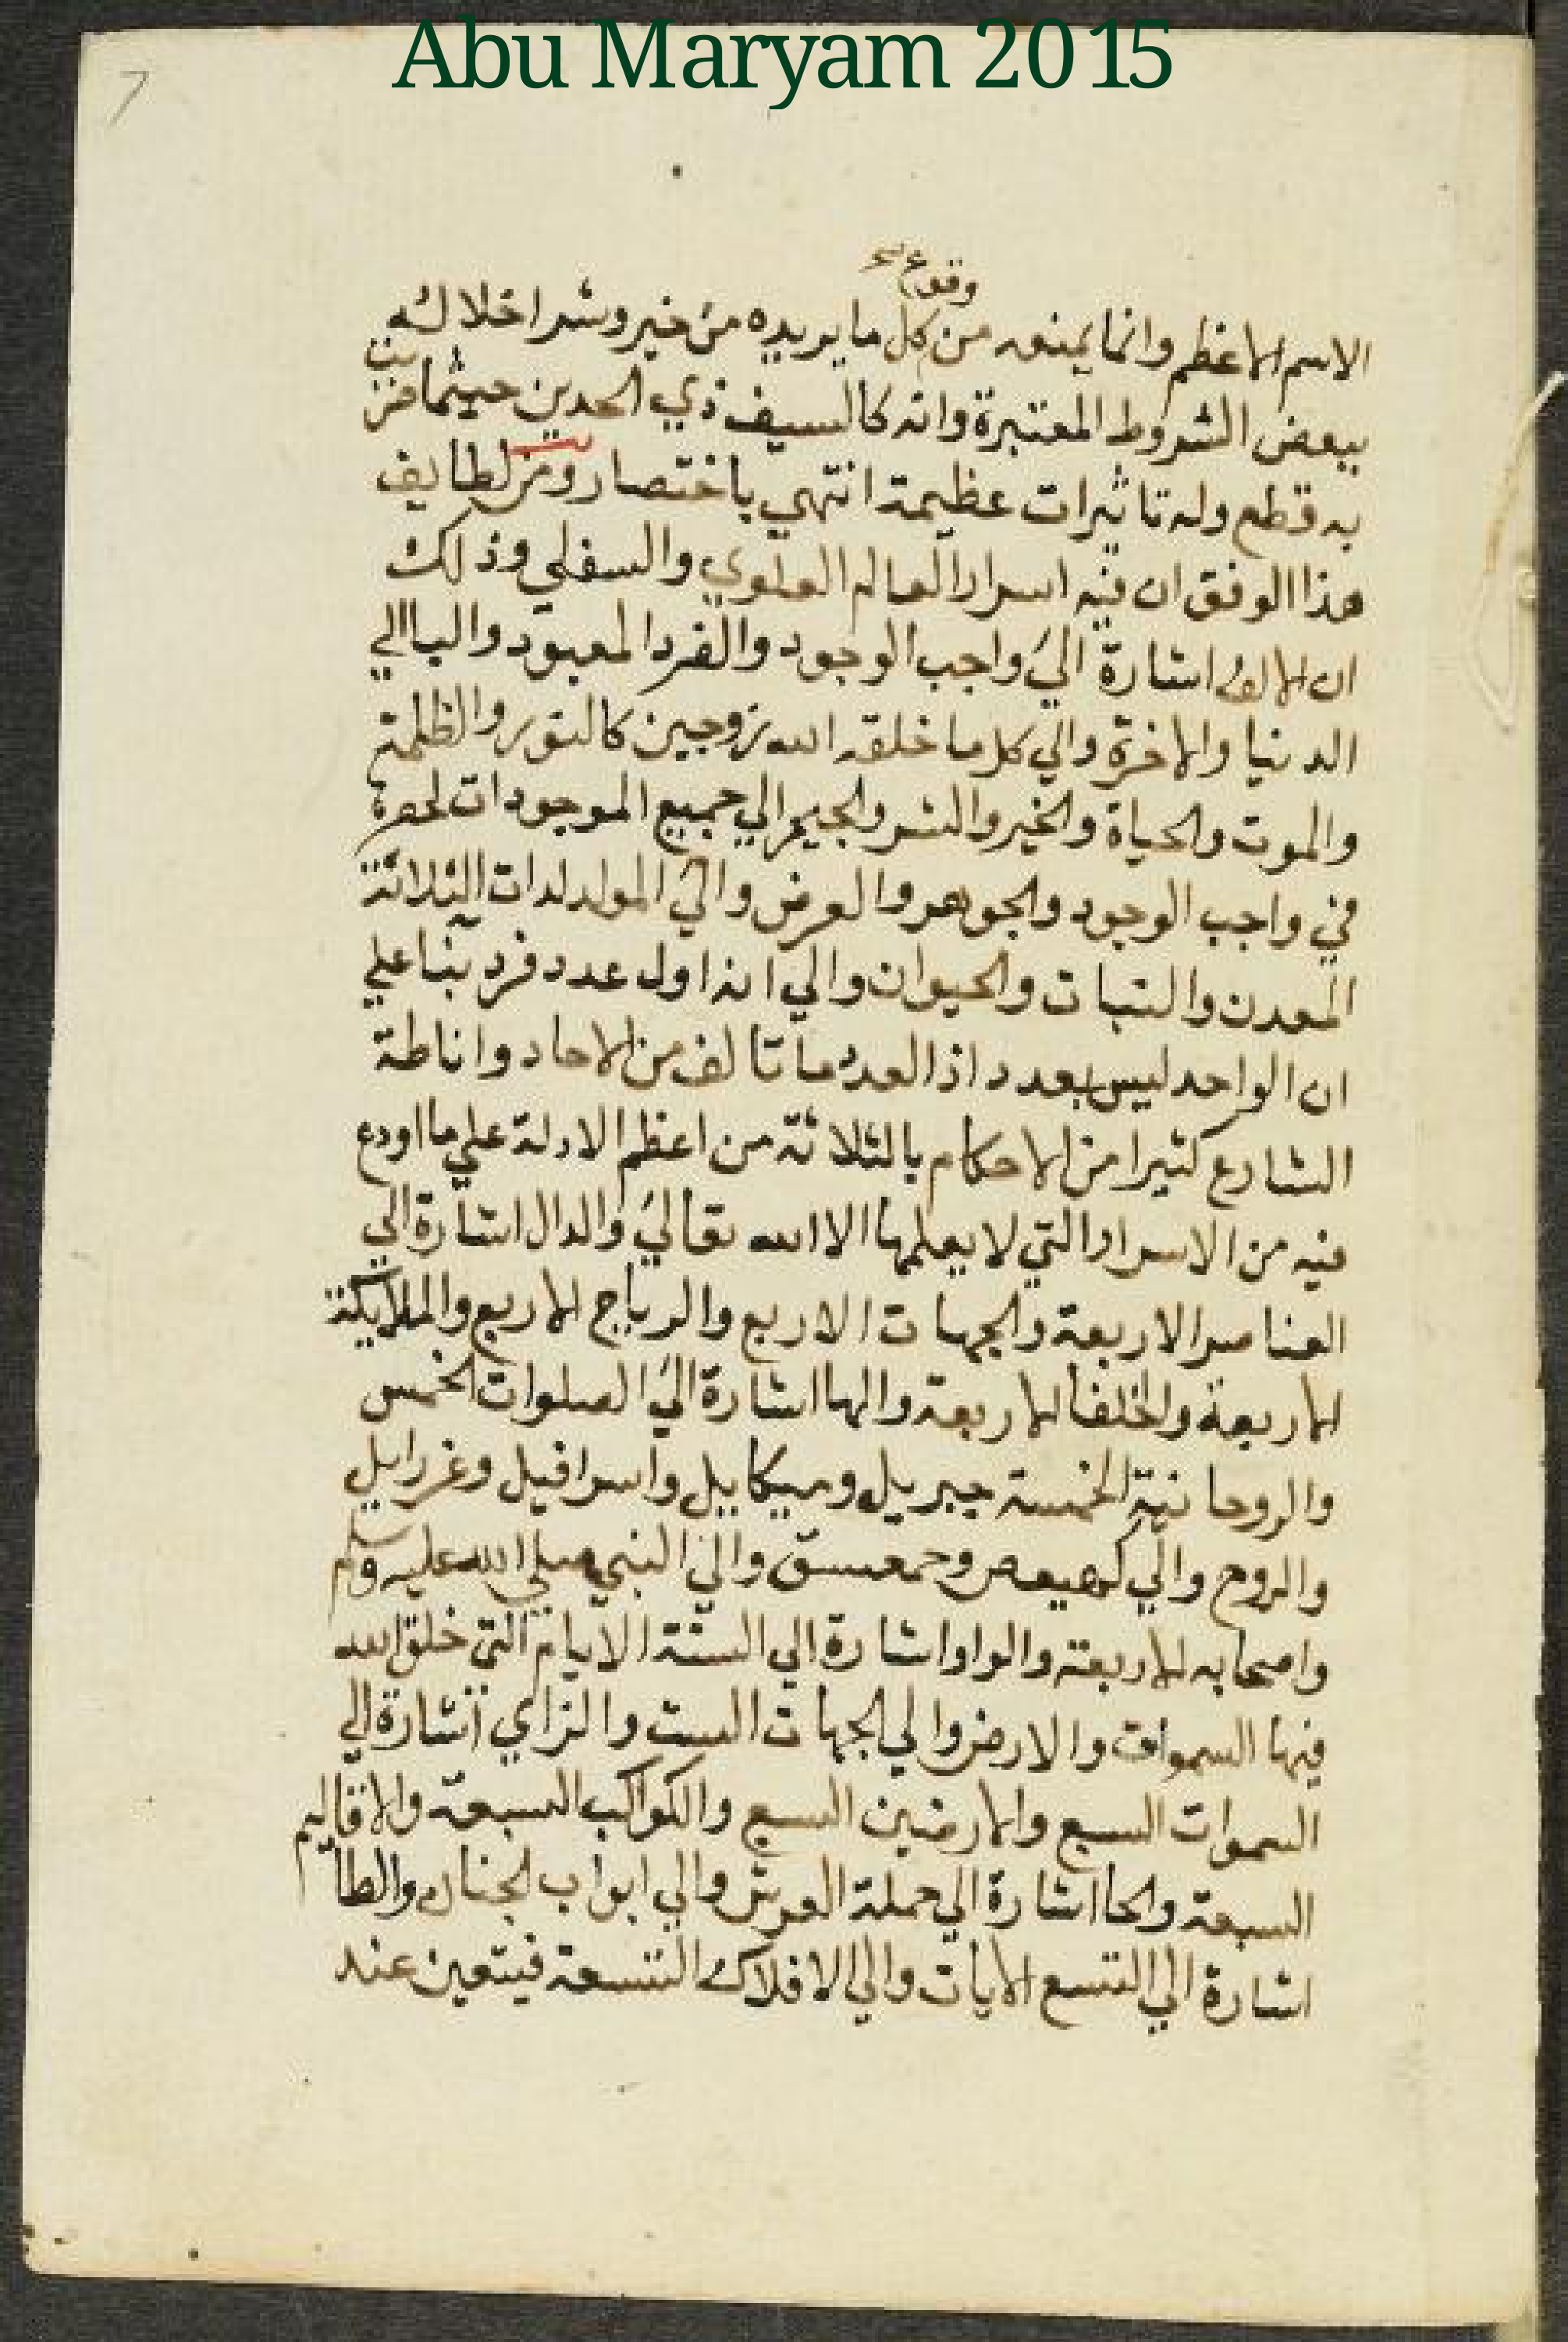 Abu Maryam 2015
7
وقوع
الاسم الاعظم وانما يمنعه من كل ما يريده من خير وشر اخلاله
ببعض الشروط المعتبرة وانه كالسيف ذي الحدين حيثما ضربت
به قطع وله تاثيرات عظيمة انتهي باختصار ومن لطايف
هذا الوفق ان فيه اسرار العالم العلوي والسفلي وذلك
ان الالف اشارة الي واجب الوجود والفرد المعبود والبا الي
الدنيا والاخرة والي كل ما خلقه الله زوجين كالنور والظلمة
والموت والحياة والخير والشر والجيم الي جميع الموجودات
في واجب الوجود والجوهر والعرض والي المولدات الثلاثة
المعدن والنبات والحيوان والي انه اول عدد فرد بنا علي
ان الواحد ليس بعدد اذ العدد ما تالف من الاحاد واناطة
الشارع كثيرا من الاحكام بالثلاثة من اعظم الادلة علي ما اودع
فيه من الاسرار التي لا يعلمها الا الله تعالي والدال اشارة الي
العناصر الاربعة والجهات الاربع والرياح الاربع والملايكة
الاربعة والخلفا الاربعة والها اشارة الي الصلوات الخمس
والروحانية الخمسة جبريل وميكاييل واسرافيل وعزراييل
والروح والي كهيعص وحمعسق والي النبي صلي الله عليه وسلم
واصحابه الاربعة والواو اشارة الي الستة الايام التي خلق الله
فيها السموات والارض والي الجهات الست والزاي اشارة الي
السموات السبع والارضين السبع والكواكب السبعة والاقاليم
السبعة والحا اشارة الي حملة العرش والي ابواب الجنان والطا
اشارة الي التسع الايات والي الافلاك التسعة فيتعين عند